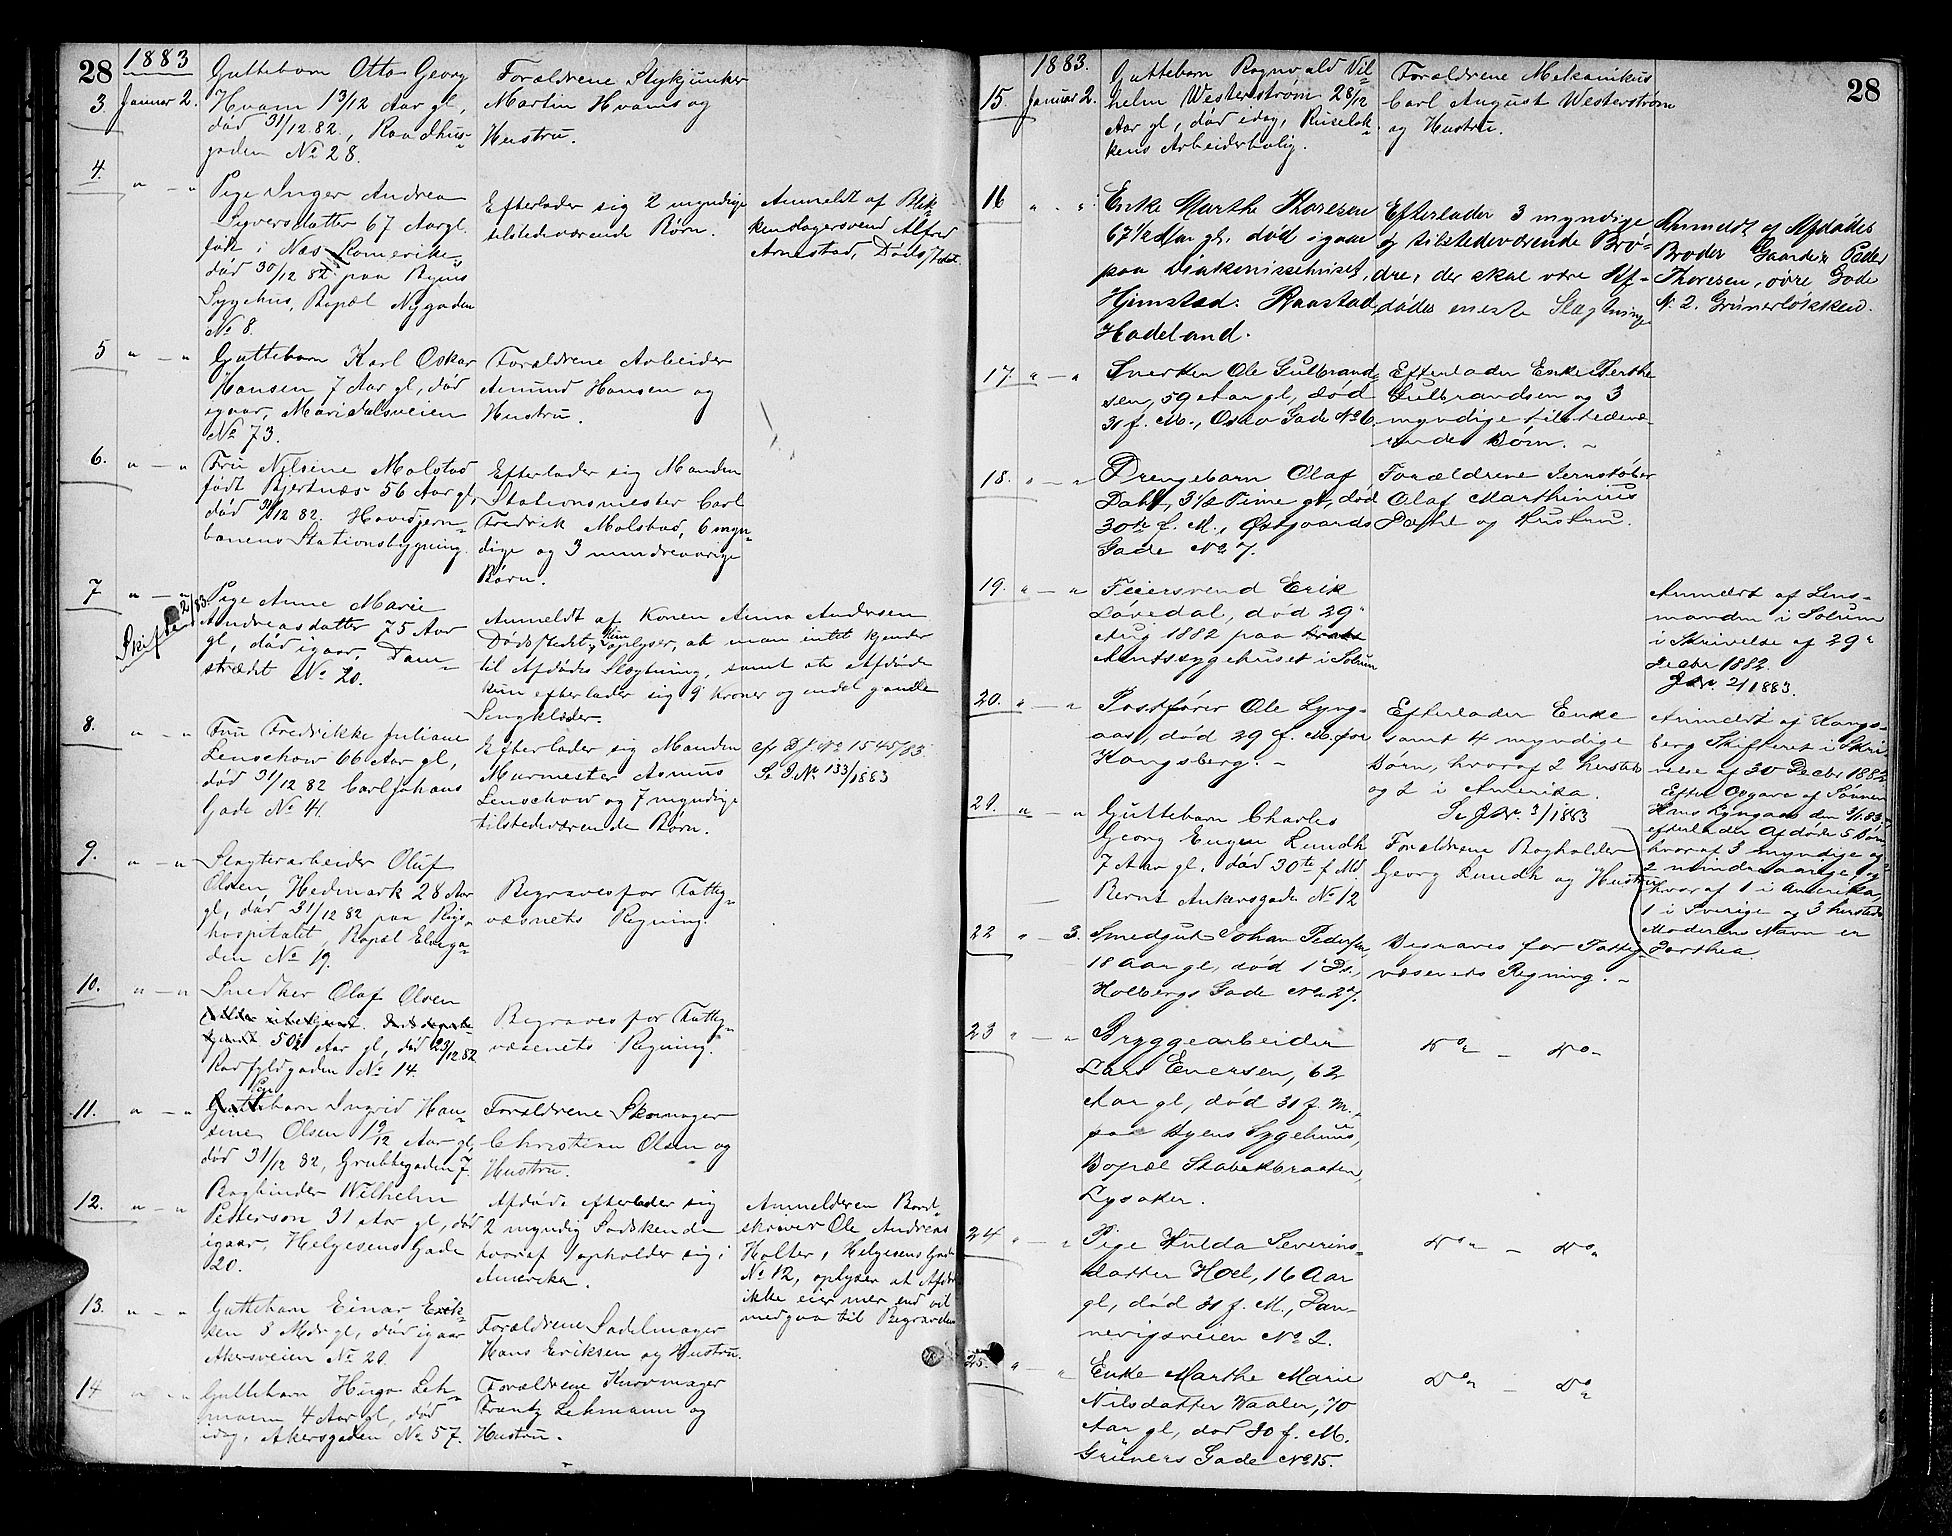 28
1883
3
Januar 2.
Guttebarn Otto Georg
Hvam 1 3/12 Aar gl,
død 31/12 82, Raadhus-
gaden No 28.
Forældrene
Martin Hvams og
Hustru.
4.
" — "
Pige Inger Andrea
Syversdatter 67 Aar gl.
født i Næs Romerike
død 30/12 82 paa Byens
Sygehus, Bopæl Nygaden
No 8.
Efterlader sig 2 myndige
tilstedeværende Børn.
Anmeldt af Blik-
kenslagersvend Alfred
Arnestad, Dødsstedet.
5
" — "
Guttebarn Karl Oskar
Hansen 7 Aar gl, død
igaar, Maridalsveien
No 73.
Forældrene Arbeider
Amund Hansen og
Hustru.
6.
" — "
Fru Nilsine Molstad
født Bjertnæs 56 Aar gl,
død 31/12 82. Hovedjern-
banens Stationsbygning.
Efterlader sig Manden
Stationsmester Carl
Fredrik Molstad, 6 myn-
dige og 3 umdreaarige
Børn.
7
" — "
2/83.
Pige Anne Marie
Andreasdatter 75 Aar
gl, død igaar, Dam-
strædet No 20.
Anmeldt af Konen Anna Andersen
Dødsstedet, Hun oplyser, at man intet kjender
til Afdødes Slægtning, samt at Afdøde
kun efterlader sig 9 Kroner og endel gamle
Sengklæder.
8.
" — "
Fru Fredrikke Juliane
Lenschow 66 Aar gl,
død 31/12 82 Carl Johans
Gade No 41.
Efterlader sig Manden
Murmester Asmus
Lenschow og 7 myndige
tilstedeværende Børn.
cfr D.J. No 1545/83.
Se J No 133/1883
9.
" — "
Slagterarbeider Oluf
Olsen, Hedmark 28 Aar
gl, død 31/12 82 paa Rigs-
hospitalet, Bopæl Elvega-
den No 19.
Begraves for Fattig-
væsnets Regning.
10.
" — "
Snedker Olaf Olsen
50½ Aar gl, død 29/12 82
Rørfyldgaden No 14.
Begraves for Fattig-
væsenets Regning.
11.
" — "
Guttebarn Ingrid Han-
sine Olsen 1 9/12 Aar gl,
død 31/12 82, Grubbegaden 7.
Forældrene Skomager
Christian Olsen og
Hustru.
12.
" — "
Bogbinder Wilhelm
Petterson 31 Aar gl, død
igaar, Helgesens Gade
20.
Afdøde efterlader sig
2 myndig Sødskende
hvoraf 1 opholder sig i
Amerika.
Anmelderen Bord-
skriver Ole Andreas
Holter, Helgesens Gade
No 12, oplyser at Afdøde
ikke eier mer end vil
medgaa til Begravelsen
13.
" — "
Guttebarn Einar Erik-
sen 8 Mdr gl, død igaar
Akersveien No 20.
Forældrene Sadelmager
Hans Eriksen og Hustru.
14
" — "
Guttebarn Hugo Leh-
mann 4 Aar gl, død
idag, Akersgaden No 57.
Forældrene Kurvmager
Frantz Lehmann og
Hustru.
28
1883.
15.
Januar 2.
Guttebarn Rognvald Vil-
helm Westerstrøm 2 8/12
Aar gl, død idag, Ruseløk-
kens Arbeiderbolig.
Forældrene Mekanikus
Carl August Westerstrøm
og Hustru.
16
" - "
Enke Marthe Thoresen
67½ Aar gl. død igaar
paa Diakonissehuset,
Hjemsted: Raastad
Hadeland.
Efterlader 3 myndige
og tilstedeværende Brø-
dre, der skal være Af-
dødes eneste Slægtninge
Anmeldt af Afdødes
Broder Gaardeier Peder
Thoresen, øvre Gade
N. 2. Grünerløkken.
17.
" — "
Snerker Ole Gulbrand-
sen, 59 Aar gl, død
31 f. M., Oslo Gade No 6.
Efterlader Enke Berthe
Gulbrandsen og 3
myndige tilstedevæ-
rende Børn. -
18.
" — "
Drengebarn Olaf
Dahl, 3½ Time gl, død
30te f. M., Østgaards
Gade No 7.
Forældrene Jernstøber
Olaf Marthinius
Dahl og Hustru.
19.
" — "
Feiersvend Erik
Løvedal, død 29'
Aug 1882 paa
Amtssygehuset i Solum
Anmeldt af Lens-
manden i Solum
i Skrivelse af 29'
Decbr 1882.
J Nr. 2/1883.
20.
" — "
Postfører Ole Lyng-
aas, død 29 f. M. fra
Kongsberg. -
Efterlader Enke
samt 4 myndige
Børn, hvoraf 2 hersteds
og 2 i Amerika.
Se J Nr. 3/1883
Anmeldt af Kongs-
berg Skifteret i Skri-
velse af 30 Decbr 1882
Efter Opgave af Sønnen
Hans Lyngaas den 3/1 83
efterlader Afdøde 5 Børn
hvoraf 3 myndige og
2 mindreaarige og
hvoraf 1 i Amerika,
1 i Sverige og 3 hersteds
Moderens Navn er
Dorthea
21.
" — "
Guttebarn Charles
Georg Eugen Lundh
7 Aar gl, død 30te f Md
Bernt Ankersgade No 12
Forældrene Bogholder
Georg Lundh og Hustru
22
" — 3.
Smedgut Johan Pedersen,
18 Aar gl, død 1' Ds,
Holbergs Gade No 27.
Begraves for Fattig-
væsenets Regning. -
23
" — "
Bryggearbeider
Lars Evensen, 62
Aar gl, død 31 f. M.,
paa Byens Sygehuus,
Bopæl Stabekbraaten,
Lysaker.
Do — Do
24
" — "
Pige Hulda Severins-
datter Hoel, 16 Aar
gl, død 31 f. M., Dan-
nevigsveien No 2.
Do — Do
25.
" — "
Enke Marthe Marie
Nilsdatter Waaler, 70
Aar gl, død 30 f. M.
Grüners Gade No 15.
Do — Do